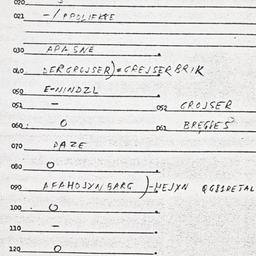 020
021 -/
030 APASNE
040 DERGROJSER)=GREJSERBRIK
050 E-NINDZL
051 - 052 GROJSER
060 0 061 BREGIES
070 DAZE
080 0
090 AFAHOJYNBARG)-HEJYN
100 0
110 -
120 0